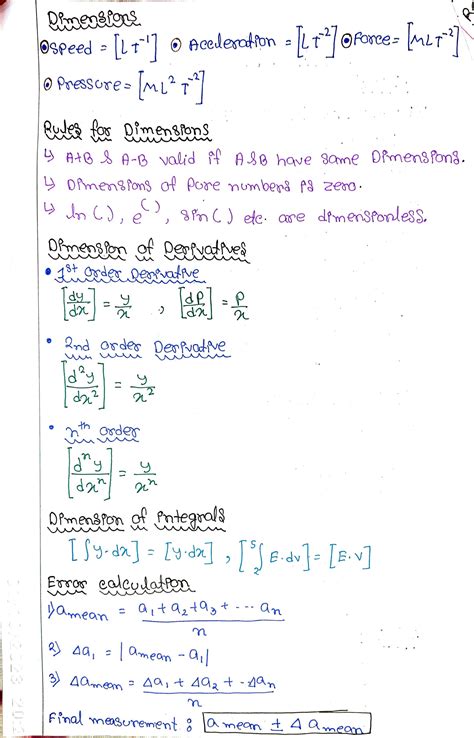 Dimensions
⊙ Speed = [LT⁻¹] ⊙ Acceleration = [LT⁻²] ⊙ Force = [MLT⁻²]
⊙ Pressure = [ML² T⁻²]
Rules for Dimensions
↳ A+B & A-B valid if A & B have same Dimensions.
↳ Dimensions of Pure numbers is zero.
↳ ln ( ), e^( ), sin ( ) etc. are dimensionless.
Dimension of Derivatives
• 1st order Derivative
[dy/dx] = y/x , [dP/dx] = P/x
• 2nd order Derivative
[d²y/dx²] = y/x²
• nth order
[dⁿy/dxⁿ] = y/xⁿ
Dimension of integrals
[∫y.dx] = [y.dx] , [₂∫⁵ E.dv] = [E.v]
Error calculation
1) a mean = a₁ + a₂ + a₃ + ... aₙ / n
2) Δa₁ = | a mean - a₁ |
3) Δa mean = Δa₁ + Δa₂ + - Δaₙ / n
Final measurement : a mean ± Δ a mean